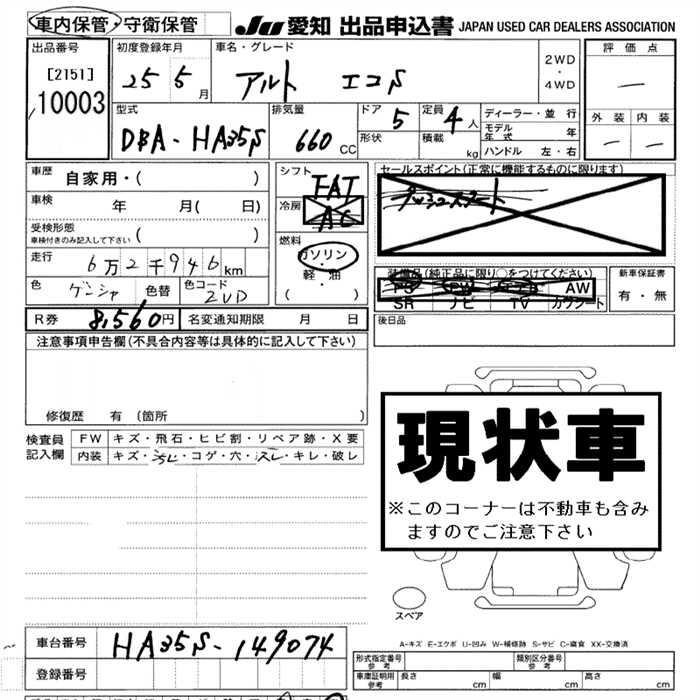 車内保管・守衛保管 JU 愛知 出品申込書 JAPAN USED CAR DEALERS ASSOCIATION
出品番号 初度登録年月 車名・グレード 2WD・4WD 評価点
[2151] 25 5月 アルト エコS —
10003 外装 内装
— —
型式 排気量 ドア 5 定員 4人 ディーラー・並行
DBA-HA35S 660CC 形状 積載 kg モデル年式 年
ハンドル 左・右
車歴 自家用・( ) シフト FAT セールスポイント(正常に機能するものに限ります)
車検 年 月(日) 冷房 AC プッシュスタート
受検形態 車検付きのみ記入して下さい ・( )
走行 6万2千946km 燃料 ガソリン・軽・油 ( )
装備品(純正品に限り○をつけてください) 新車保証書
色 ゲンシャ 色替 色コード ZVD PS PW AW 有・無
SR ナビ TV カワシート
R券 8,560円 名変通知期限 月 日 後日品
注意事項申告欄(不具合内容等は具体的に記入して下さい)
修復歴 有(箇所 )
検査員記入欄 FW キズ・飛石・ヒビ割・リペア跡・X要
内装 キズ・汚レ・コゲ・穴・スレ・キレ・破レ
現状車
※このコーナーは不動車も含み
ますのでご注意下さい
スペア
A-キズ E-エクボ U-凹み W-補修跡 S-サビ C-腐食 XX-交換済
車台番号 HA35S-149074
登録番号
形式指定番号 参考 類別区分番号 参考
車庫証明用 参考 長さ cm 幅 cm 高さ cm